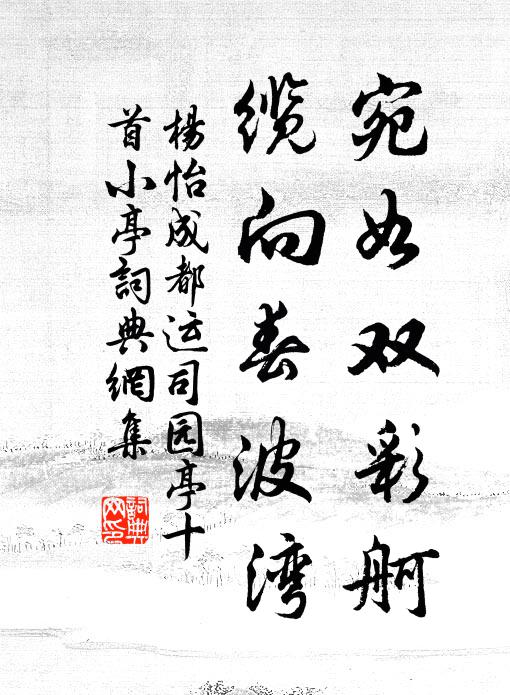 宛如双彩舸
缆向春波湾
楊怡成都运司园亭十
首小亭詞典網集
詞典
网印